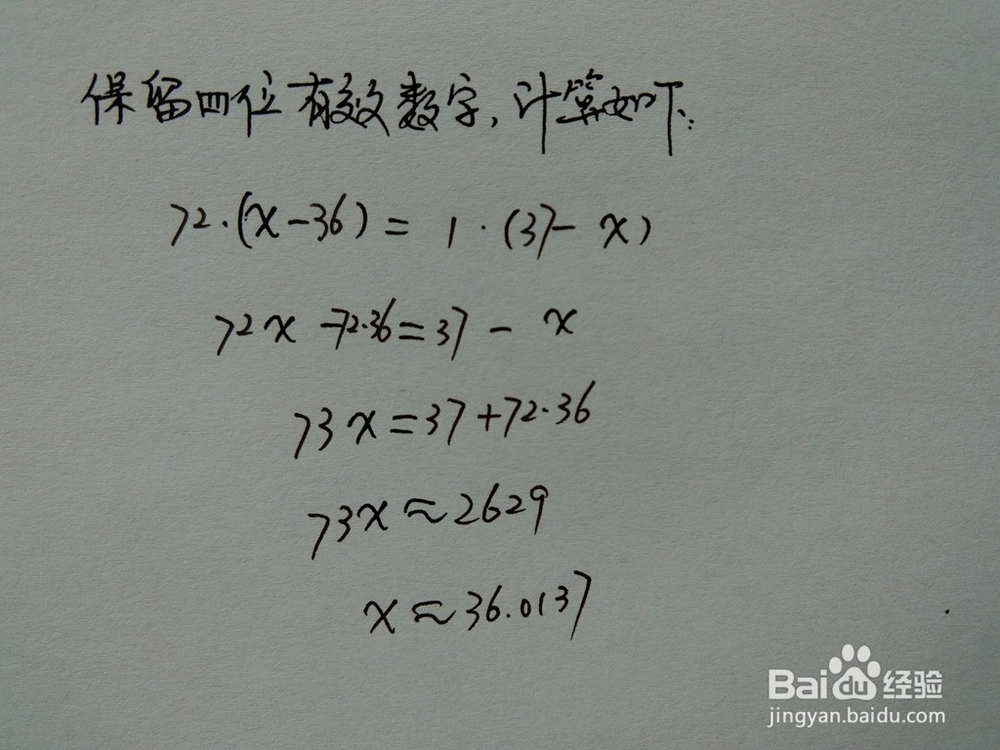 保留四位有效数字,计算如下:
72·(x-36)= 1·(37- x)
72x -72·36=37- x
73x=37+72·36
73x≈2629
x≈36.0137
Baidu经验
jingyan.baidu.com